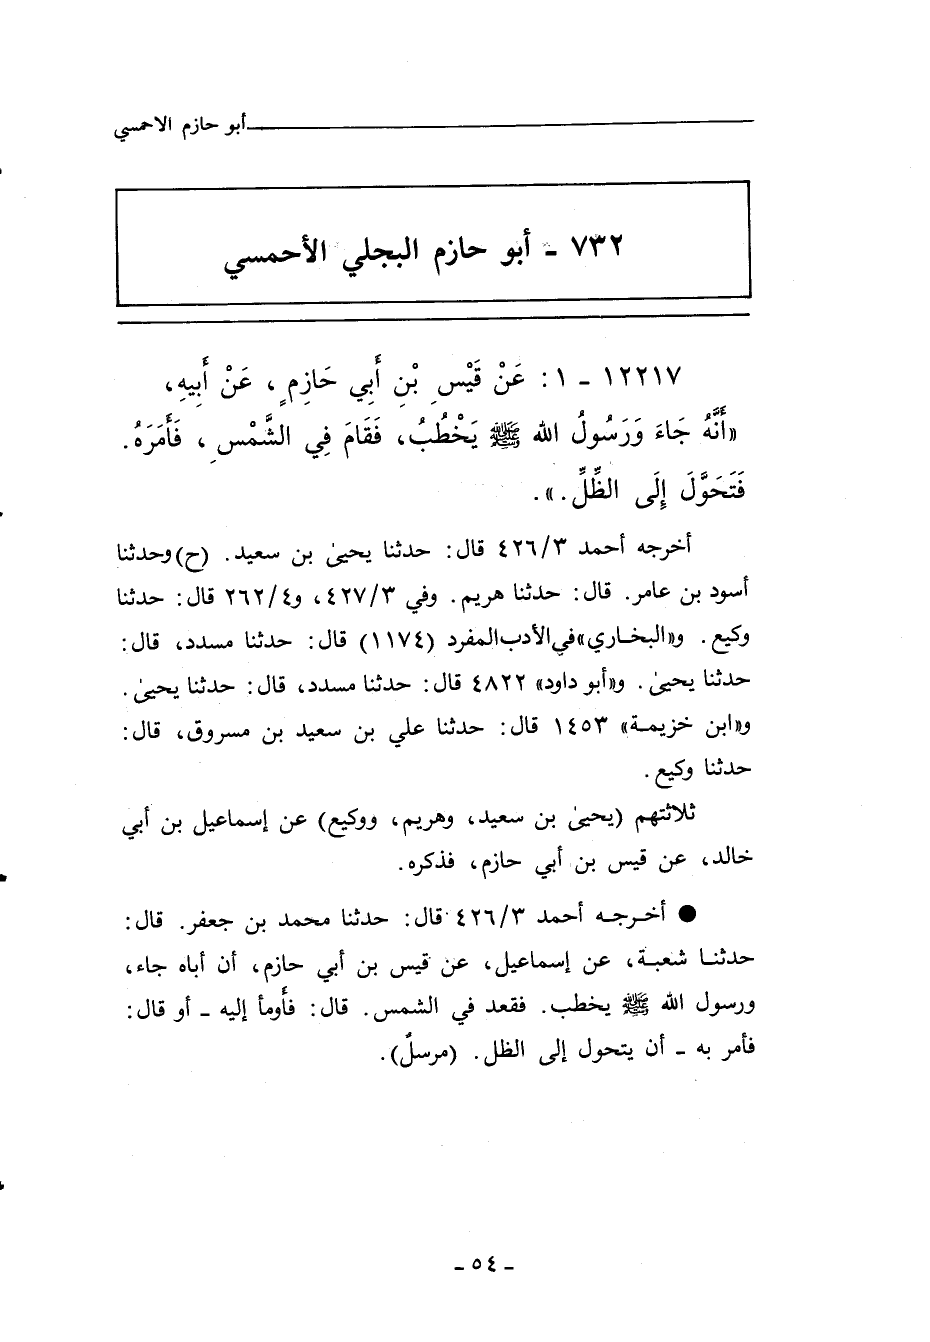 أبو حازم الاحمسي
٧٣٢ - أبو حازم البجلي الأحمسي
١٢٢١٧ - ١ : عَنْ قَيْسِ بْنِ أَبِي حَازِمٍ ، عَنْ أَبِيهِ،
«أَنَّهُ جَاءَ وَرَسُولُ الله ﷺ يَخْطُبُ، فَقَامَ فِي الشَّمْسِ ، فَأَمَرَهُ.
فَتَحَوَّلَ إِلَى الظِّلِّ.».
أخرجه أحمد ٤٢٦/٣ قال: حدثنا يحيىٰ بن سعيد. (ح) وحدثنا
أسود بن عامر. قال: حدثنا هريم. وفي ٤٢٧/٣، و٢٦٢/٤ قال: حدثنا
وكيع. و«البخاري» في الأدب المفرد (١١٧٤) قال: حدثنا مسدد، قال:
حدثنا يحيىٰ. و«أبو داود» ٤٨٢٢ قال: حدثنا مسدد، قال: حدثنا يحيىٰ.
و«ابن خزيمة» ١٤٥٣ قال: حدثنا علي بن سعيد بن مسروق، قال:
حدثنا وكيع.
ثلاثتهم (يحيىٰ بن سعيد، وهريم، ووكيع) عن إسماعيل بن أبي
خالد، عن قيس بن أبي حازم، فذكره.
● أخرجه أحمد ٤٢٦/٣ قال: حدثنا محمد بن جعفر. قال:
حدثنا شعبة، عن إسماعيل، عن قيس بن أبي حازم، أن أباه جاء،
ورسول الله ﷺ يخطب. فقعد في الشمس. قال: فأَومأ إليه - أو قال:
فأمر به - أن يتحول إلى الظل. (مرسلٌ).
- ٥٤ -